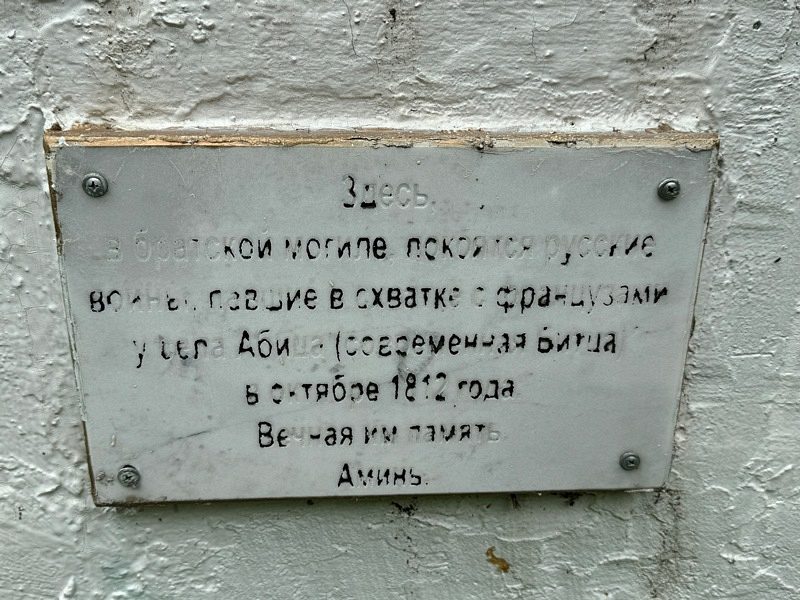 Здесь,
в братской могиле, покоятся русские
воины, павшие в схватке с французами
у села Абица (современная Битца)
в октябре 1812 года.
Вечная им память.
Аминь.